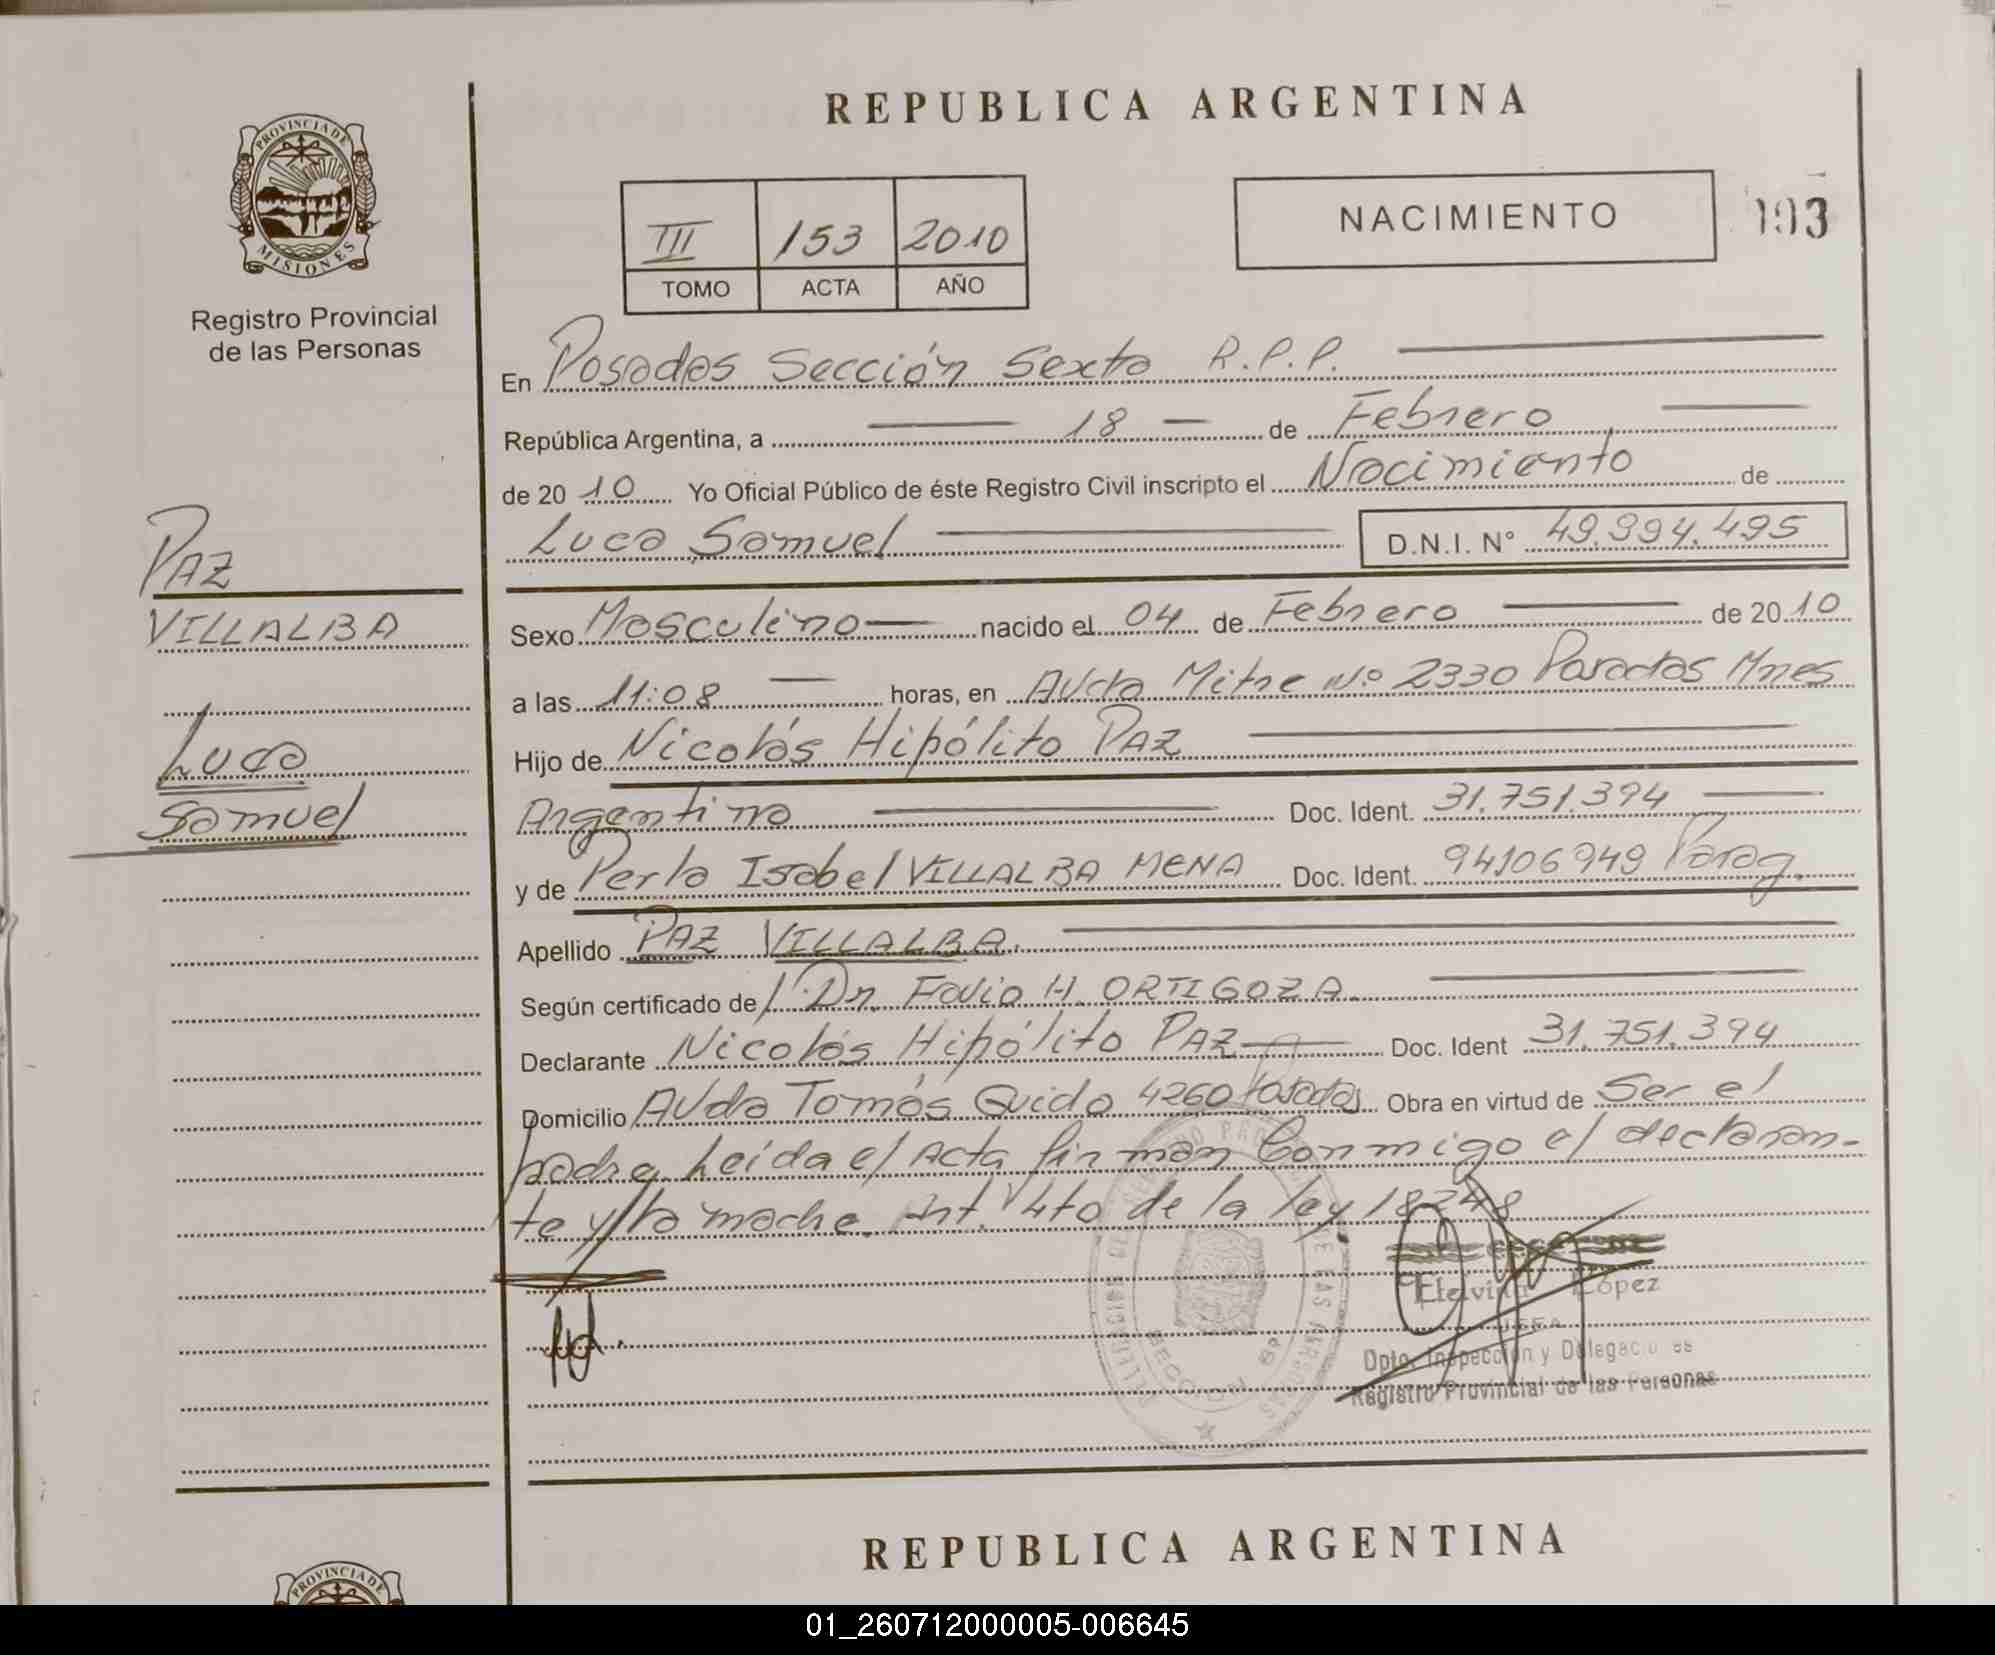 REPUBLICA ARGENTINA
PROVINCIA DE
MISIONES
Registro Provincial
de las Personas
III 153 2010
TOMO ACTA AÑO
NACIMIENTO
193
En Posadas Sección Sexta R.P.P.
República Argentina, a 18 de Febrero
de 2010 Yo Oficial Público de éste Registro Civil inscripto el Nacimiento de
Luca Samuel D.N.I. N° 49.994.495
PAZ
VILLALBA
Luca
Samuel
Sexo Masculino nacido el 04 de Febrero de 2010
a las 11:08 horas, en Avda Mitre Nº 2330 Posadas Mnes
Hijo de Nicolás Hipólito PAZ
Argentino Doc. Ident. 31.751.394
y de Perla Isabel VILLALBA MENA Doc. Ident. 94106949 Parag.
Apellido PAZ VILLALBA.
Según certificado de Dr. Favio H. ORTIGOZA.
Declarante Nicolás Hipólito PAZ Doc. Ident 31.751.394
Domicilio Avda Tomás Guido 4260 Posadas Obra en virtud de Ser el
padre. Leída el Acta firman Conmigo el declaran-
te y la madre. Art. 4to de la ley 18248
Etelvina López
JEFA
Dpto. Inspección y Delegaciones
Registro Provincial de las Personas
REPUBLICA ARGENTINA
PROVINCIA DE
01_260712000005-006645